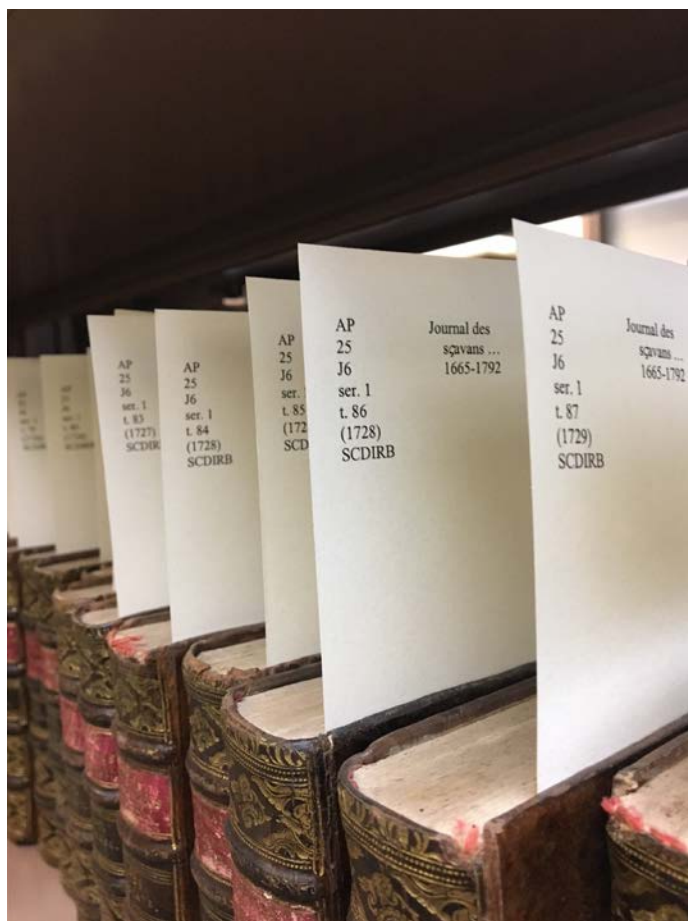 AP
25
J6
ser. 1
t. 83
(1727)
SCDIR
AP
25
J6
ser. 1
t. 84
(1728)
SCDIRB
AP
25
J6
ser.
t. 85
(172
SCD
AP
25
J6
ser. 1
t. 86
(1728)
SCDIRB
Journal des
sçavans ...
1665-1792
AP
25
J6
ser. 1
t. 87
(1729)
SCDIRB
Journal des
sçavans ...
1665-1792